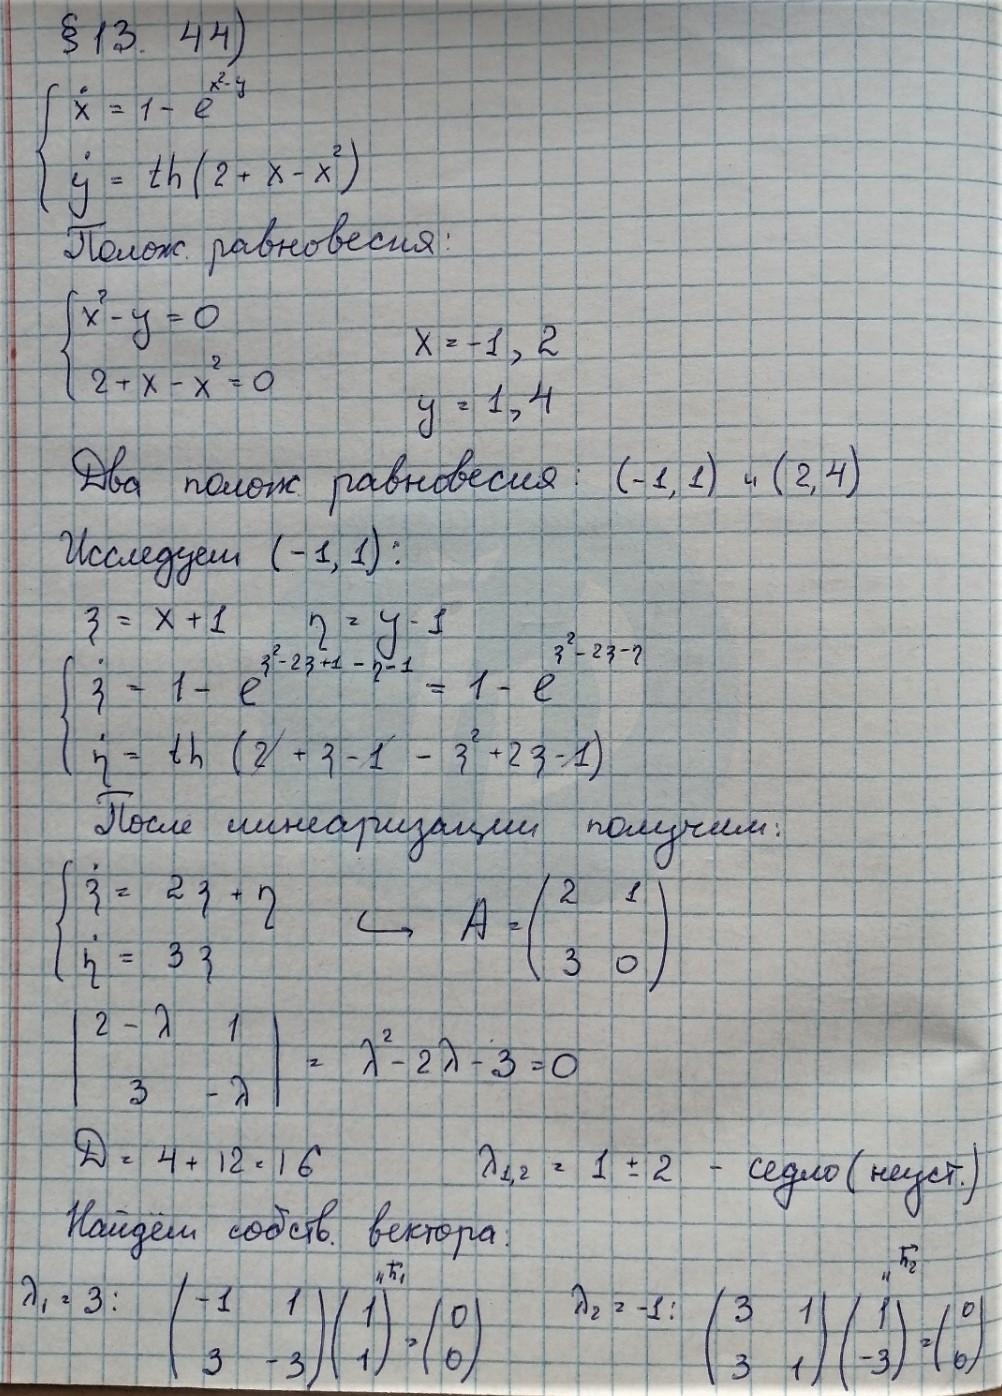 §13. 44)
ẋ = 1 - e^(x²-y)
ẏ = th(2 + x - x²)
Полож. равновесия:
x² - y = 0
2 + x - x² = 0
x = -1, 2
y = 1, 4
Два полож. равновесия: (-1, 1) и (2, 4)
Исследуем (-1, 1):
ξ = x + 1 η = y - 1
ξ̇ = 1 - e^(ξ²-2ξ+1-η-1) = 1 - e^(ξ²-2ξ-η)
η̇ = th (2 + ξ - 1 - ξ² + 2ξ - 1)
После линеаризации получим:
ξ̇ = 2ξ + η
η̇ = 3ξ
↪ A = (2 1
3 0)
|2 - λ 1
3 -λ| = λ² - 2λ - 3 = 0
D = 4 + 12 = 16 λ₁,₂ = 1 ± 2 - седло (неуст.)
Найдём собств. вектора:
λ₁ = 3: (-1 1
3 -3) (1
1) = (0
0)
"h⃗₁
λ₂ = -1: (3 1
3 1) (1
-3) = (0
0)
"h⃗₂